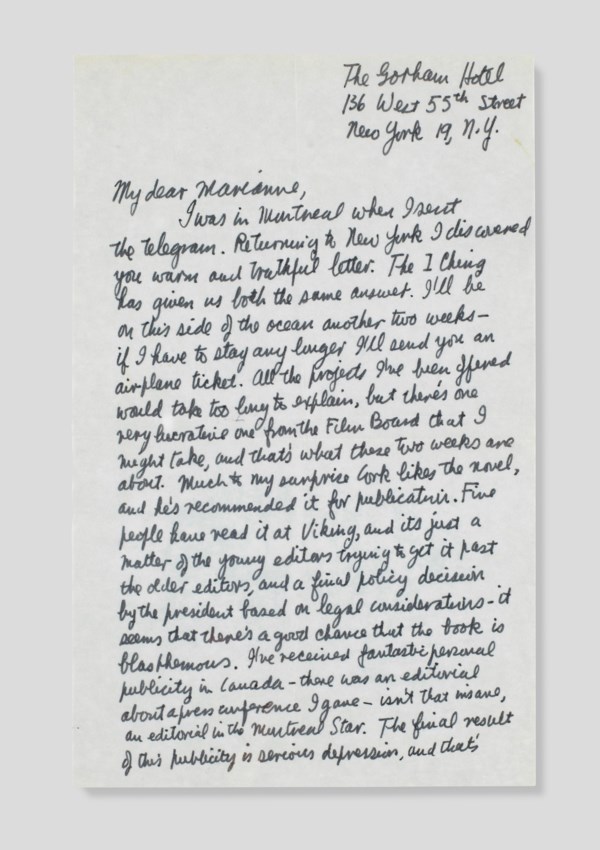 The Gorham Hotel
136 West 55th Street
New York 19, N.Y.
My dear Marianne,
I was in Montreal when I sent
the telegram. Returning to New York I discovered
you warm and truthful letter. The I Ching
has given us both the same answer. I'll be
on this side of the ocean another two weeks—
if I have to stay any longer I'll send you an
airplane ticket. All the projects I've been offered
would take too long to explain, but there's one
very lucrative one from the Film Board that I
might take, and that's what these two weeks are
about. Much to my surprise Cork likes the novel,
and he's recommended it for publication. Five
people have read it at Viking, and its just a
matter of the young editors trying to get it past
the older editors, and a final policy decision
by the president based on legal considerations - it
seems that there's a good chance that the book is
blasphemous. I've received fantastic personal
publicity in Canada - there was an editorial
about a press conference I gave - isn't that insane,
an editorial in the Montreal Star. The final result
of this publicity is serious depression, and that's